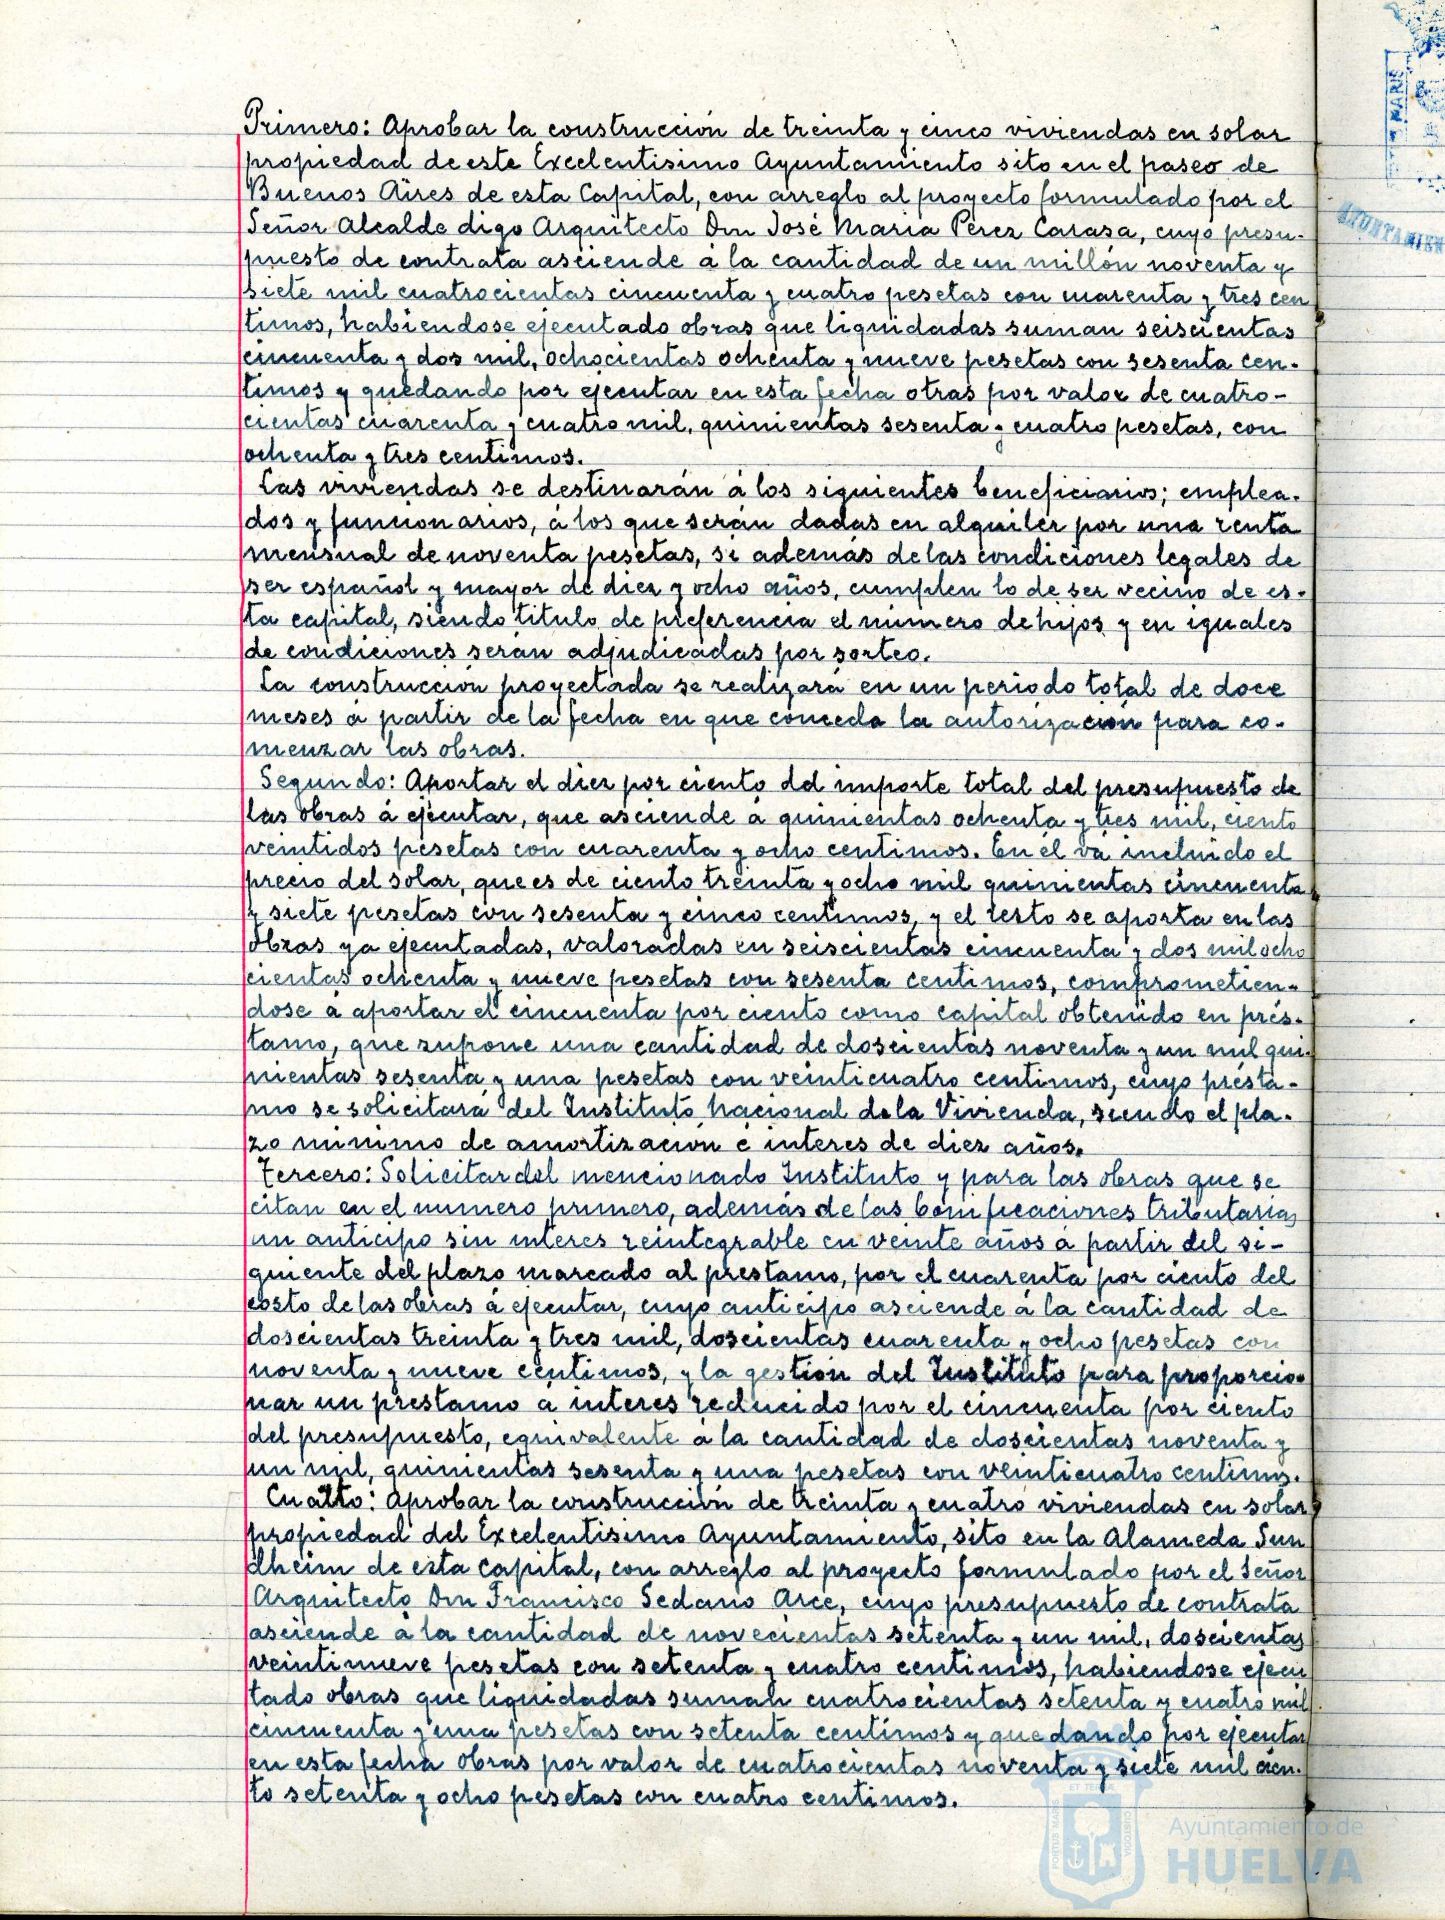 Primero: Aprobar la construcción de treinta y cinco viviendas en solar
propiedad de este Excelentisimo Ayuntamiento sito en el paseo de
Buenos Aires de esta Capital, con arreglo al proyecto formulado por el
Señor Alcalde digo Arquitecto Don José Maria Pérez Carasa, cuyo presu-
puesto de contrata asciende á la cantidad de un millón noventa y
siete mil cuatrocientas cincuenta y cuatro pesetas con cuarenta y tres cen
timos, habiendose ejecutado obras que liquidadas suman seiscientas
cincuenta y dos mil, ochocientas ochenta y nueve pesetas con sesenta cen-
timos y quedando por ejecutar en esta fecha otras por valor de cuatro-
cientas cuarenta y cuatro mil, quinientas sesenta y cuatro pesetas, con
ochenta y tres centimos.
Las viviendas se destinarán á los siguientes beneficiarios; emplea-
dos y funcionarios, á los que serán dadas en alquiler por una renta
mensual de noventa pesetas, si además de las condiciones legales de
ser español y mayor de diez y ocho años, cumplen lo de ser vecino de es-
ta capital, siendo titulo de preferencia el número de hijos y en iguales
de condiciones serán adjudicadas por sorteo.
La construcción proyectada se realizará en un periodo total de doce
meses á partir de la fecha en que conceda la autorización para co-
menzar las obras.
Segundo: Aportar el diez por ciento del importe total del presupuesto de
las obras á ejecutar, que asciende á quinientas ochenta y tres mil, ciento
veintidos pesetas con cuarenta y ocho centimos. En él va incluido el
precio del solar, que es de ciento treinta y ocho mil quinientas cincuenta
y siete pesetas con sesenta y cinco centimos, y el resto se aporta en las
obras ya ejecutadas, valoradas en seiscientas cincuenta y dos mil ocho
cientas ochenta y nueve pesetas con sesenta centimos, comprometien-
dose á aportar el cincuenta por ciento como capital obtenido en prés-
tamo, que supone una cantidad de doscientas noventa y un mil qui-
nientas sesenta y una pesetas con veinticuatro centimos, cuyo présta-
mo se solicitará del Instituto Nacional de la Vivienda, siendo el pla-
zo minimo de amortización é interes de diez años.
Tercero: Solicitar del mencionado Instituto y para las obras que se
citan en el numero primero, además de las bonificaciones tributarias
un anticipo sin interes reintegrable en veinte años á partir del si-
guiente del plazo marcado al prestamo, por el cuarenta por ciento del
costo de las obras á ejecutar, cuyo anticipo asciende á la cantidad de
doscientas treinta y tres mil, doscientas cuarenta y ocho pesetas con
noventa y nueve centimos, y la gestion del Instituto para proporcio-
nar un prestamo á interes reducido por el cincuenta por ciento
del presupuesto, equivalente á la cantidad de doscientas noventa y
un mil, quinientas sesenta y una pesetas con veinticuatro centimos.
Cuarto: Aprobar la construcción de treinta y cuatro viviendas en solar
propiedad del Excelentisimo Ayuntamiento, sito en la Alameda Sun
dheim de esta capital, con arreglo al proyecto formulado por el Señor
Arquitecto Don Francisco Sedano Arce, cuyo presupuesto de contrata
asciende á la cantidad de novecientas setenta y un mil, doscientas
veintinueve pesetas con setenta y cuatro centimos, habiendose ejecu
tado obras que liquidadas suman cuatrocientas setenta y cuatro mil
cincuenta y una pesetas con setenta centimos y quedando por ejecutar
en esta fecha obras por valor de cuatrocientas noventa y siete mil cien-
to setenta y ocho pesetas con cuatro centimos.
PORTUS MARIS
ET TERRAE
CUSTODIA
Ayuntamiento de
HUELVA
MARIS
AYUNTAMIEN